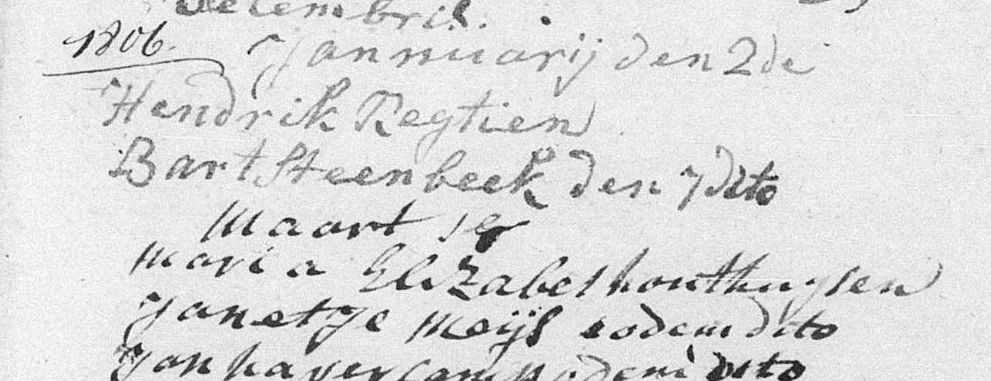 Decembris.
1806. Jannuarij den 2de
Hendrik Regtien
Bart Steenbeek den 7 dito
Maart
maria Elizabet houthuysen
Janetje Meijs eodem dito
Jan havercamp eodem dito